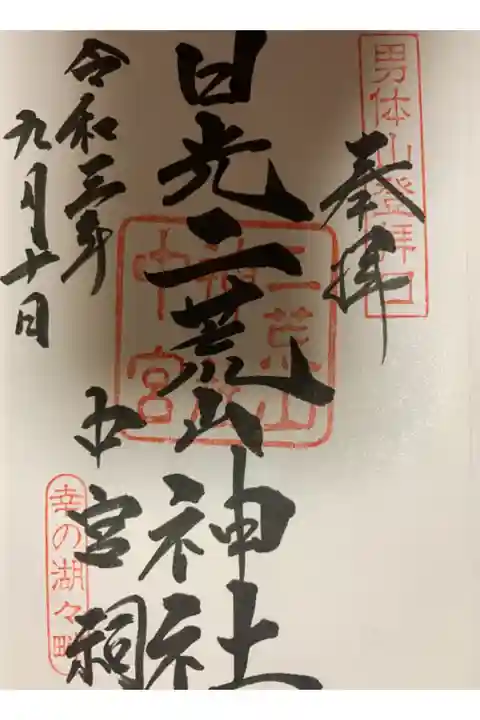 男体山登拝口
奉拝
日光二荒山神社
二荒山
神社
中宮
中宮祠
令和三年
九月十日
幸の湖々畔